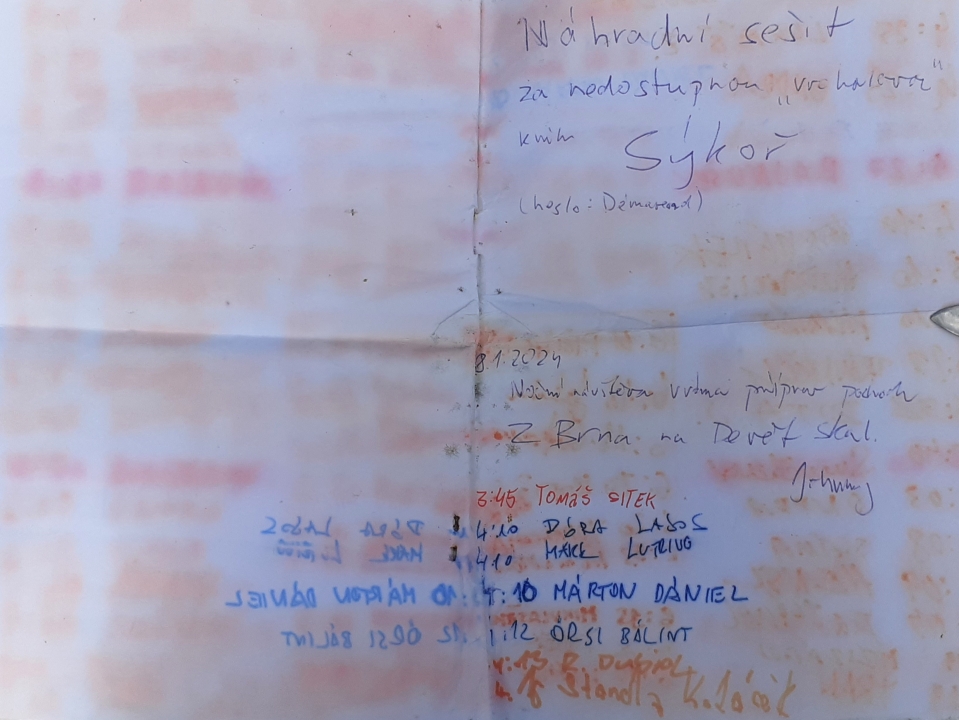 Náhradní sešit
za nedostupnou „vrcholovou"
knih
Sýkoř
(heslo: Démarend)
8.1.2024
Noční návštěva v rámci příprav pochodu
Z Brna na Devět skal.
3:45 TOMÁŠ SITEK
4:10 DÓRA LAGOS
410 MAKE
4:10 MÁRTON DÁNIEL
4:12 ÖRSI BÁLINT
4:15 R.
4:18 Standa Koláček